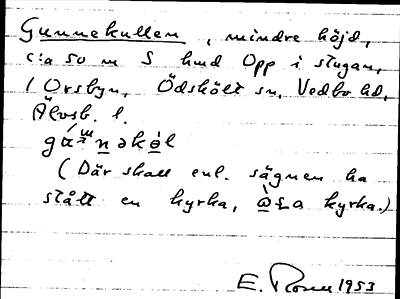 Gunnekullen, mindre höjd,
c:a 50 m S hmd Opp i stugan,
i Orsbyn, Ödskölt sn, Vedbo hd,
Älvsb. l.
(Där skall enl. sägnen ha
stått en kyrka, kyrka.)
E. Rosen 1953